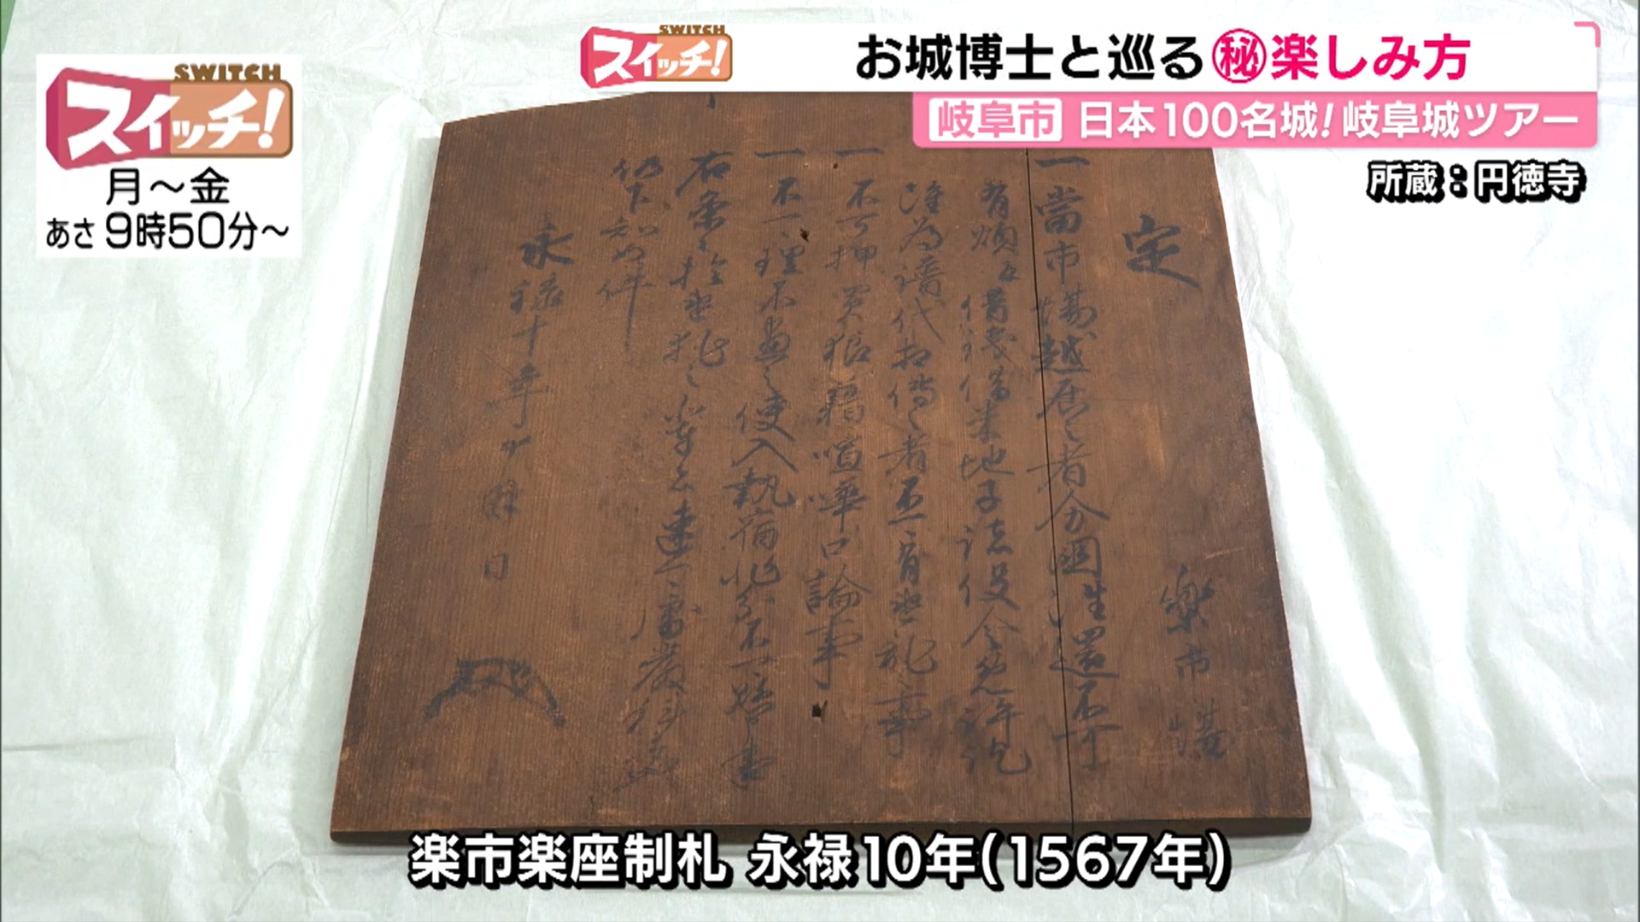 SWITCH
スイッチ!
月～金
あさ9時50分～
SWITCH
スイッチ!
お城博士と巡る㊙楽しみ方
岐阜市 日本100名城!岐阜城ツアー
所蔵：円徳寺
定 樂市場
一當市場越居之者分國往還不可
有煩并借錢借米地子諸役令免許訖
雖為譜代相傳之者不可有違乱之事
一不可押買狼藉喧嘩口論事
一不可理不盡之使入執宿非分不可懸申事
右条々於違犯之輩者速可處嚴科者也
仍下知如件
永禄十年 日
楽市楽座制札 永禄10年(1567年)